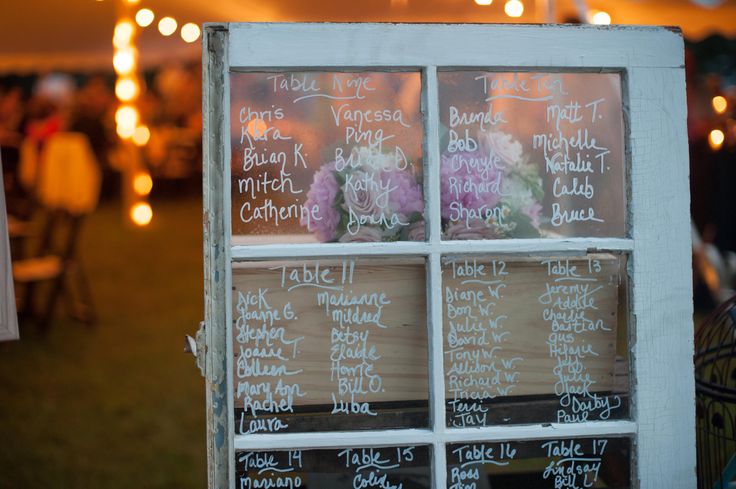 Table Nine
Chris
Kara
Brian K.
Mitch
Catherine
Vanessa
Ping
Brian D.
Kathy
Donna
Table Ten
Brenda
Bob
Cheryle
Richard
Sharon
Matt T.
Michelle
Natalie T.
Caleb
Bruce
Table 11
Dick
Joanne G.
Stephen
Joanne T.
Colleen
Mary Ann
Rachel
Laura
Marianne
Mildred
Betsy
Elaide
Howie
Bill O.
Luba
Table 12
Diane W.
Don W.
Julie W.
David W.
Tony W.
Allison W.
Richard W.
Tricia W.
Terri
Jay
Table 13
Jeremy
Adele
Charlie
Bastian
Gus
Hilarie
Jeff
Julie
Jack
Darby
Paul
Table 14
Mariano
Table 15
Colin
Table 16
Ross
Table 17
Lindsay
Bill L.